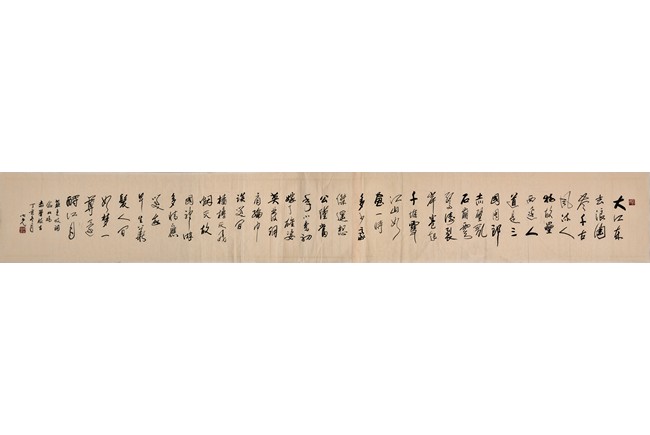 大江东
去浪淘
尽千古
风流人
物故垒
西边人
道是三
国周郎
赤壁乱
石崩云
惊涛裂
岸卷起
千堆雪
江山如
画一时
多少豪
杰遥想
公瑾当
年小乔初
嫁了雄姿
英发羽
扇纶巾
谈笑间
樯橹灰飞
烟灭故
国神游
多情应
笑我
早生华
发人间
如梦一
尊还
酹江月